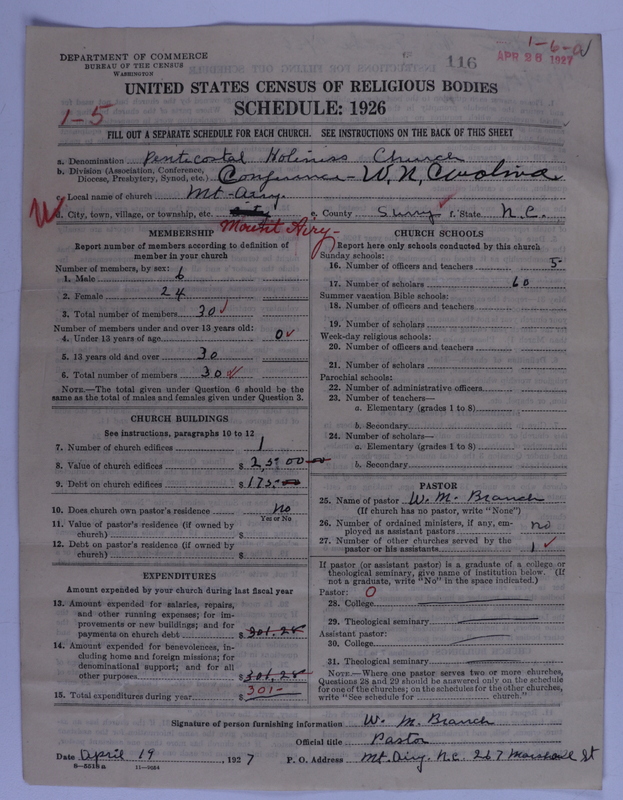 1-6-a
116
APR 28 1927
DEPARTMENT OF COMMERCE
BUREAU OF THE CENSUS
WASHINGTON
UNITED STATES CENSUS OF RELIGIOUS BODIES
SCHEDULE: 1926
1-5
FILL OUT A SEPARATE SCHEDULE FOR EACH CHURCH. SEE INSTRUCTIONS ON THE BACK OF THIS SHEET
a. Denomination Pentecostal Holiness Church
b. Division (Association, Conference, Diocese, Presbytery, Synod, etc.) Conference - W. N. Carolina
c. Local name of church Mt-Airy.
W
d. City, town, village, or township, etc. e. County Surry f. State N.C.
Mount Airy-
MEMBERSHIP
Report number of members according to definition of
member in your church
Number of members, by sex:
1. Male 6
2. Female 24
3. Total number of members 30
Number of members under and over 13 years old:
4. Under 13 years of age 0
5. 13 years old and over 30
6. Total number of members 30
NOTE.—The total given under Question 6 should be
same as the total of males and females given under Question 3.
CHURCH BUILDINGS
See instructions, paragraphs 10 to 12
7. Number of church edifices 1
8. Value of church edifices $ 2,500
9. Debt on church edifices $ 175-
10. Does church own pastor's residence No
Yes or No
11. Value of pastor's residence (if owned by
church) $
12. Debt on pastor's residence (if owned by
church) $
EXPENDITURES
Amount expended by your church during last fiscal year
13. Amount expended for salaries, repairs,
and other running expenses; for im-
provements or new buildings; and for
payments on church debt $ 301.28
14. Amount expended for benevolences, in-
cluding home and foreign missions; for
denominational support; and for all
other purposes $ 301.28
15. Total expenditures during year $ 301-
CHURCH SCHOOLS
Report here only schools conducted by this church
Sunday schools:
16. Number of officers and teachers 5
17. Number of scholars 60
Summer vacation Bible schools:
18. Number of officers and teachers
19. Number of scholars
Week-day religious schools:
20. Number of officers and teachers
21. Number of scholars
Parochial schools:
22. Number of administrative officers
23. Number of teachers—
a. Elementary (grades 1 to 8)
b. Secondary
24. Number of scholars—
a. Elementary (grades 1 to 8)
b. Secondary
PASTOR
25. Name of pastor W. M. Branch
(If church has no pastor, write "None")
26. Number of ordained ministers, if any, em-
ployed as assistant pastors no
27. Number of other churches served by the
pastor or his assistants 1
If pastor (or assistant pastor) is a graduate of a college or
theological seminary, give name of institution below. (If
not a graduate, write "No" in the space indicated.)
Pastor: O
28. College
29. Theological seminary
Assistant pastor:
30. College
31. Theological seminary
NOTE.—Where one pastor serves two or more churches,
Questions 28 and 29 should be answered only on the schedule
for one of the churches; on the schedules for the other churches,
write "See schedule for church."
Signature of person furnishing information W. M. Branch
Official title Pastor
Date April 19, 1927 P. O. Address Mt. Airy. N.C. 267 Marshall St
8-5518a 11-9024